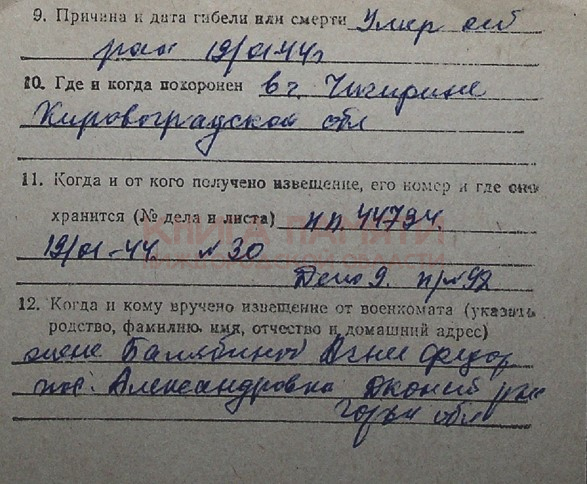 9. Причина и дата гибели или смерти Умер от
ран 19/01-44г
10. Где и когда похоронен в г. Чигирине
Кировоградской обл
11. Когда и от кого получено извещение, его номер и где оно
хранится (№ дела и листа) п.п. 44794.
КНИГА ПАМЯТИ
19/01-44. №30
НИЖЕГОРОДСКОЙ ОБЛАСТИ
Дело 9. пр№92
12. Когда и кому вручено извещение от военкомата (указать
родство, фамилию, имя, отчество и домашний адрес)
жене Балябиной Агнии Федор
Александровка
Горьк обл